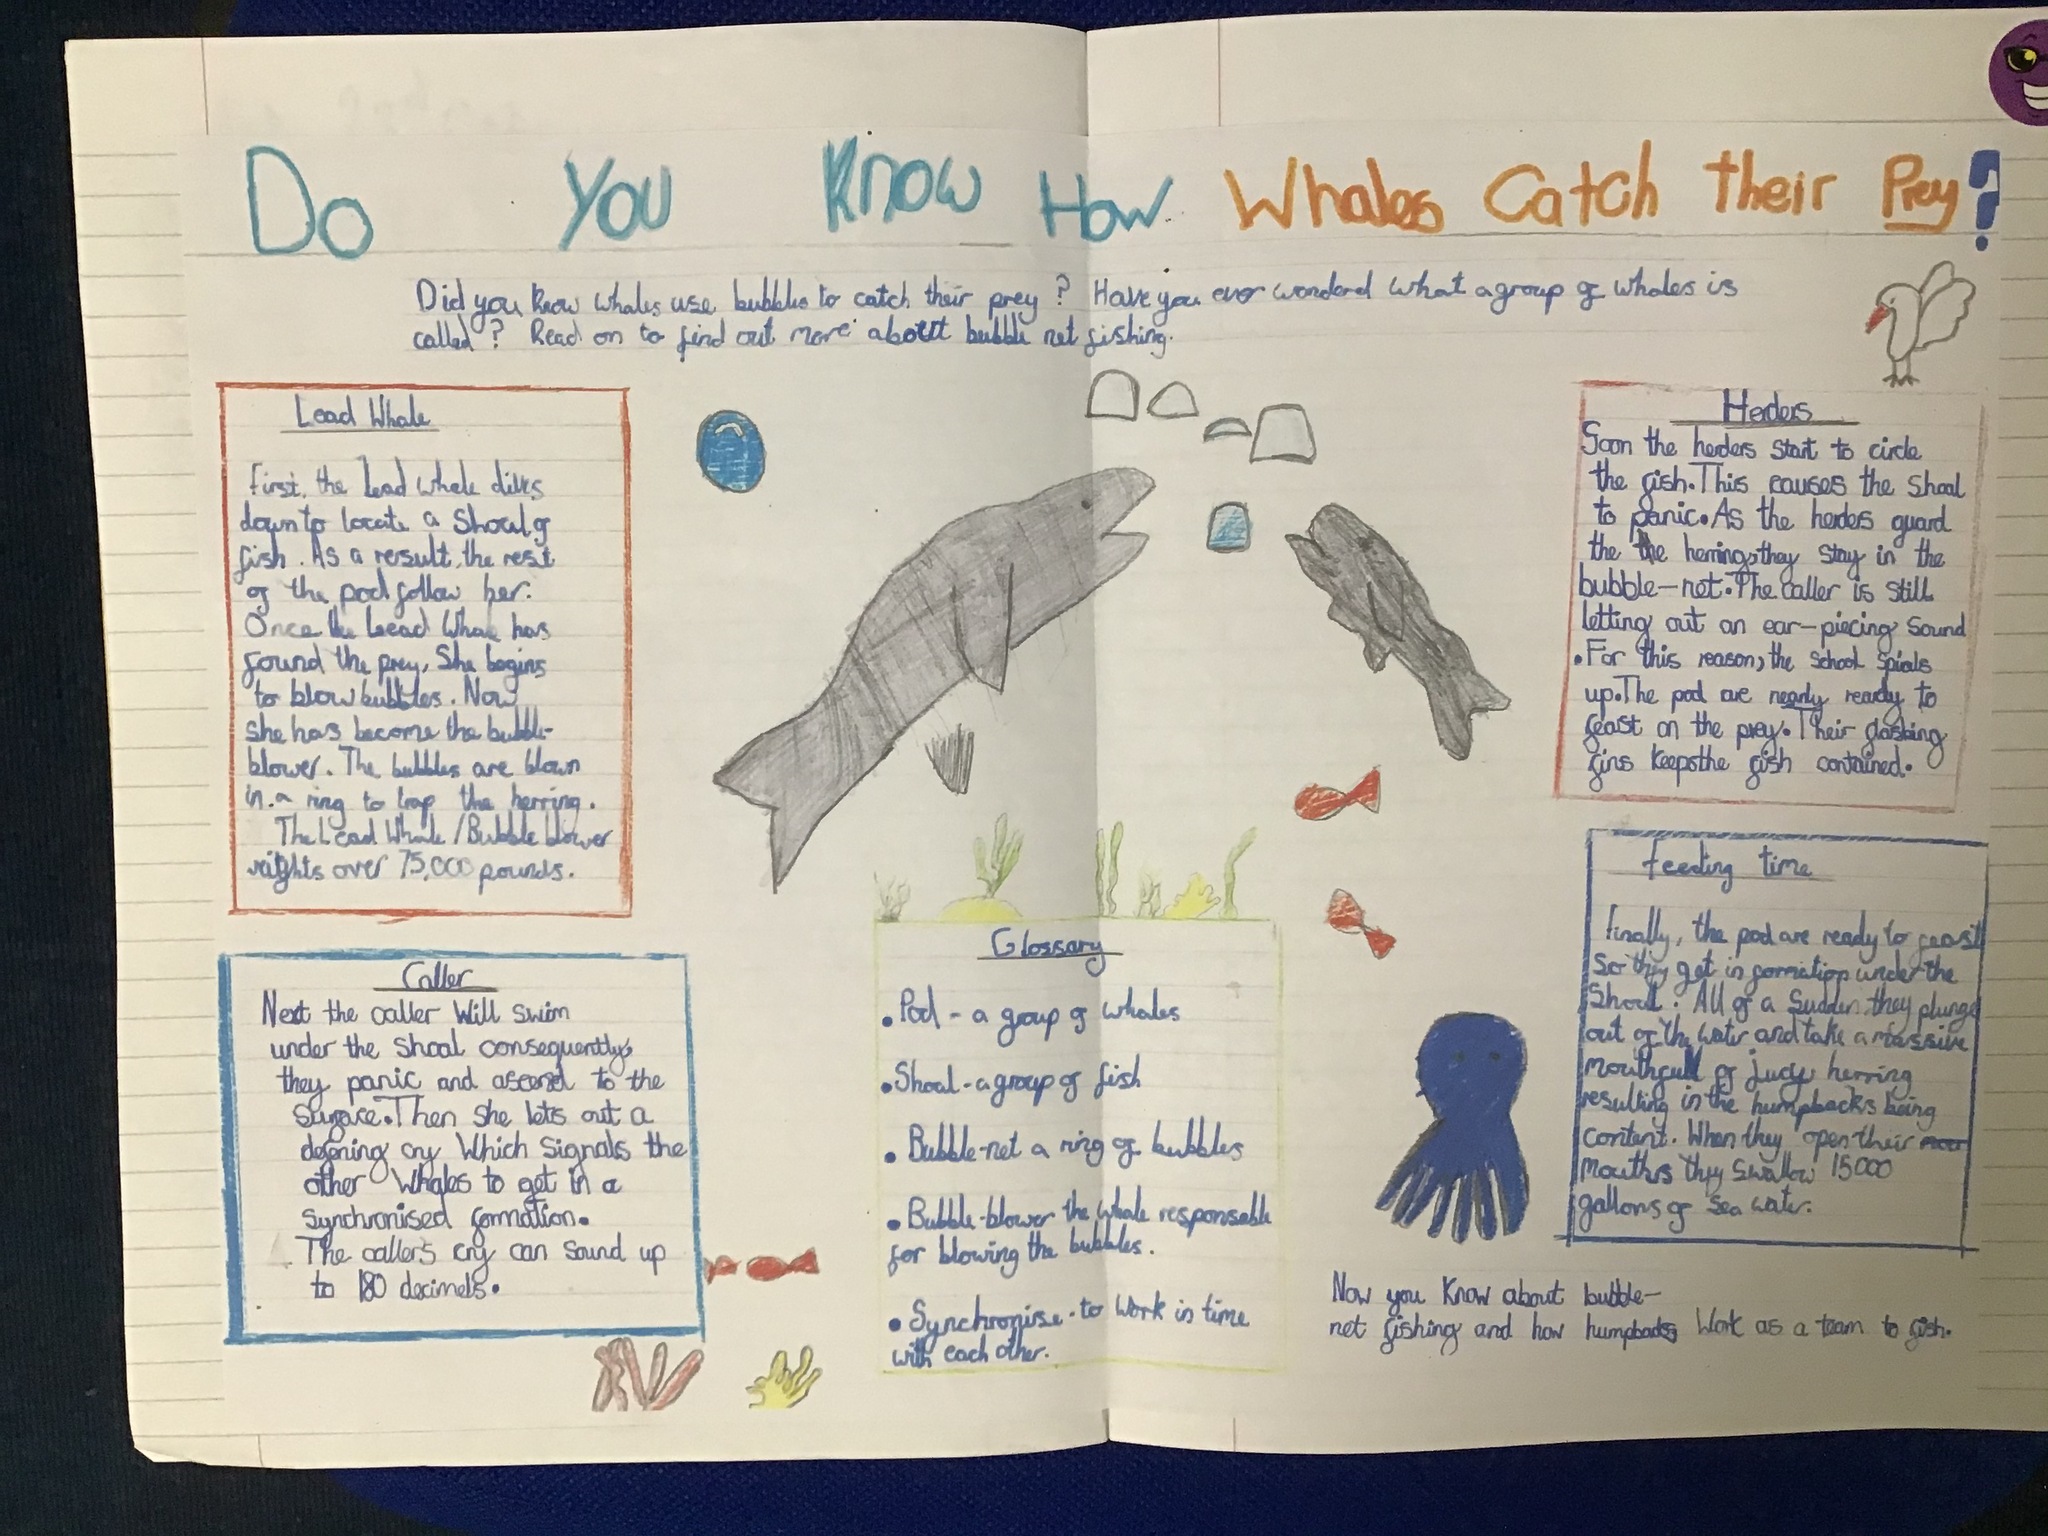 Do You Know How Whales Catch Their Prey?
Did you know whales use bubbles to catch their prey? Have you ever wonderd what a group of whales is
called? Read on to find out more about bubble net fishing.
Lead Whale
First, the lead whale dives
down to locate a Shoal of
fish. As a result, the rest
of the pod follow her.
Once the Lead Whale has
found the prey, She begins
to blow bubbles. Now
she has become the bubble-
blower. The bubbles are blown
in a ring to trap the herring.
The Lead Whale/Bubble blower
wights over 75,000 pounds.
Caller
Next the caller Will swim
under the shoal consequently,
they panic and ascend to the
surface. Then she lets out a
defening cry Which Signals the
other Whales to get in a
synchronised formation.
The caller's cry can sound up
to 180 decimels.
Glossary
• Pod - a group of whales
• Shoal - a group of fish
• Bubble-net a ring of bubbles
• Bubble-blower the whale responseble
for blowing the bubbles.
• Synchronise - to work in time
with each other.
Herders
Soon the herders start to circle
the fish. This causes the shoal
to panic. As the herders guard
the the herring, they stay in the
bubble-net. The caller is still
letting out an ear-piecing sound
. For this reason, the school spials
up. The pod are nearly ready to
feast on the prey. Their flashing
fins keeps the fish contained.
Feeding time
Finally, the pod are ready to feast
so they get in formation under the
Shoal. All of a Sudden, they plunge
out of the water and take a massive
mouthfull of jucy herring
resulting in the humpbacks being
content. When they open their
mouths they swallow 15000
gallons of sea water.
Now you know about bubble-
net fishing and how humpbacks work as a team to fish.